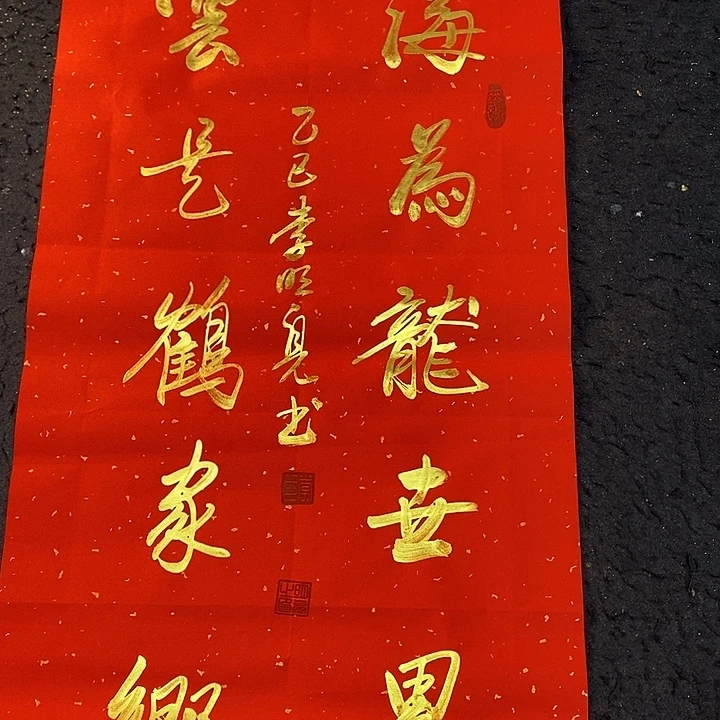 海為龍世界
雲是鶴家鄉
乙巳李明亮书